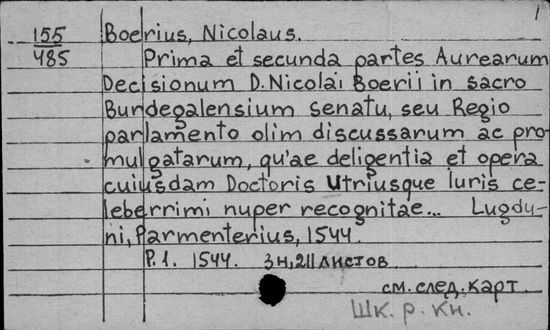 1
155 Boerius, Nicolaus.
485 Prima et secunda partes Aurearum
Decisionum D. Nicolai Boerii in sacro
Burdegalensium senatu, seu Regio
parlamento olim discussarum ac pro-
mulgatarum, quae deligentia et opera
cuiusdam Doctoris Utriusque Iuris ce-
leberrimi nuper recognitae... Lugdu-
ni, Parmenterius, 1544.
P. 1. 1544. 3н, 211 листов
см. след. карт.
Шк. р. кн.